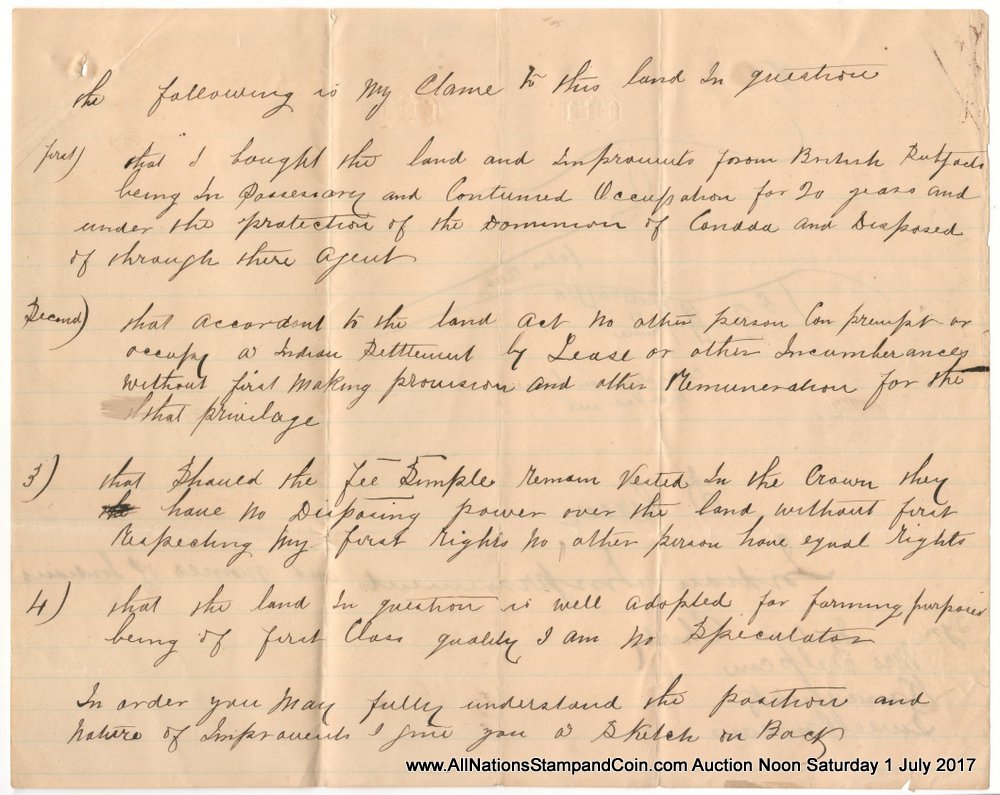 the following is My Clame to this land In question
first) that I bought the land and Improvents from British Subjects
being In Possessary and Contunied Occupation for 20 years and
under the protection of the Dominion of Canada and Disposed
of through there Agent
Second) that accordant to the land Act no other person Can prempt or
occupy a Indian Settlement by Lease or other Incumberances
without first Making provision and other Remuneration for the
that privilage
3) that Should the Fee Simple remain Vested In the Crown they
have no Disposing power over the land without first
Respecting My first rights no other person have equal rights
4) that the land In question is well adopted for farming purposes
being of first Class quality I am no Speculator
In order you May fully understand the position and
Nature of Improvents I give you a Sketch on Back
www.AllNationsStampandCoin.com Auction Noon Saturday 1 July 2017